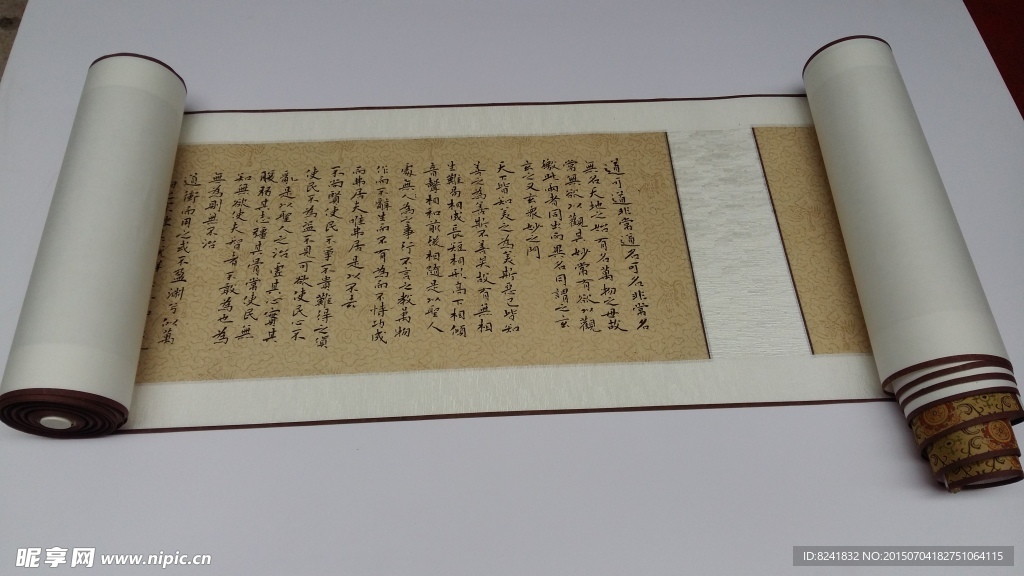 道可道非常道名可名非常名
無名天地之始有名萬物之母故
常無欲以觀其妙常有欲以觀
徼此兩者同出而異名同謂之玄
玄之又玄衆妙之門
天下皆知美之為美斯惡已皆知
善之為善斯不善矣故有無相
生難易相成長短相形高下相傾
音聲相和前後相隨是以聖人
處無為之事行不言之教萬物
作而不辭生而不有為而不恃功成
而弗居夫唯弗居是以不去
不尚賢使民不爭不貴難得之貨
使民不為盜不見可欲使民心不
亂是以聖人之治虛其心實其
腹弱其志強其骨常使民無
知無欲使夫智者不敢為也為
無為則無不治
道沖而用之或不盈淵兮似萬
昵享网 www.nipic.cn
ID:8241832 NO:20150704182751064115